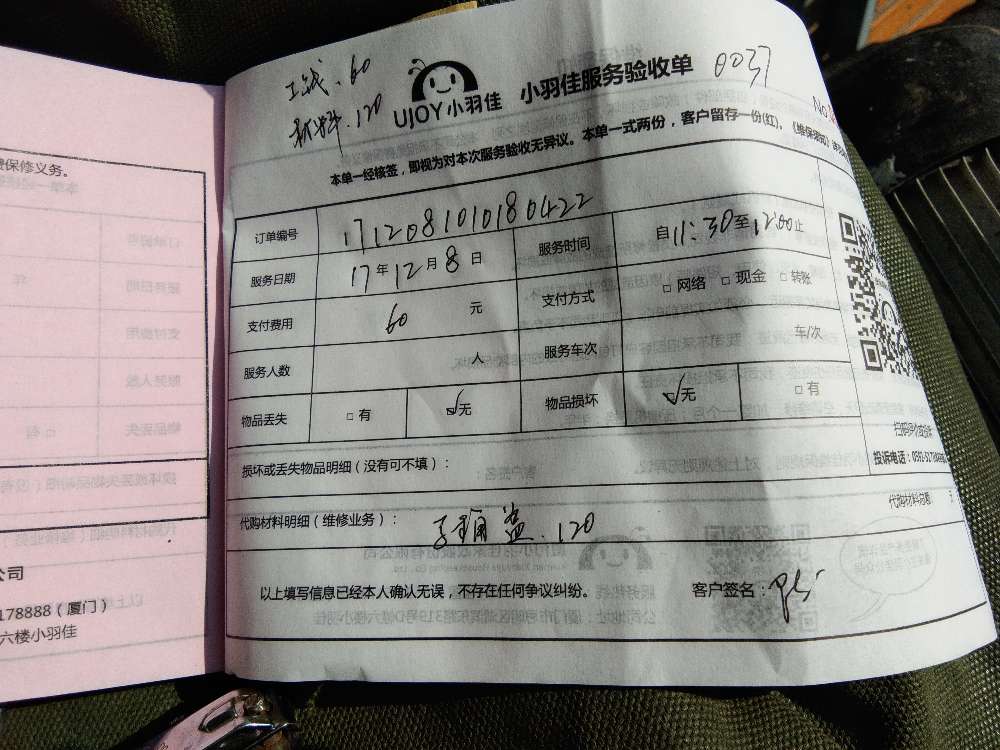 工钱.60
材料.120
UJOY小羽佳 小羽佳服务验收单 0037
No
本单一经核签，即视为对本次服务验收无异议。本单一式两份，客户留存一份(红)。《维保须知》
订单编号 171208101018 0422
服务日期 17年12月8日 服务时间 自11:30至12:00止
支付费用 60 元 支付方式 □网络 □现金 □转账
服务人数 人 服务车次 车/次
物品丢失 □有 ☑无 物品损坏 ☑无 □有
损坏或丢失物品明细（没有可不填）：
投诉电话：0592-
代购材料明细（维修业务）： 120
代购材料问题
以上填写信息已经本人确认无误，不存在任何争议纠纷。 客户签名：
保修义务。
公司
178888（厦门）
六楼小羽佳